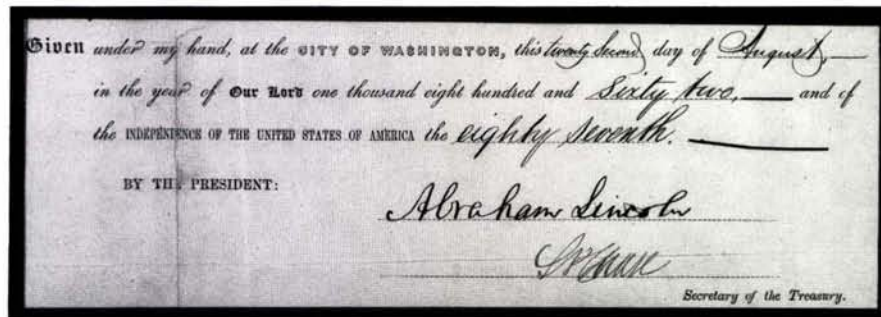 Given under my hand, at the CITY OF WASHINGTON, this twenty second day of August,
in the year of Our Lord one thousand eight hundred and Sixty two, and of
the INDEPENDENCE OF THE UNITED STATES OF AMERICA the eighty seventh.
BY THE PRESIDENT:
Abraham Lincoln
S P Chase
Secretary of the Treasury.